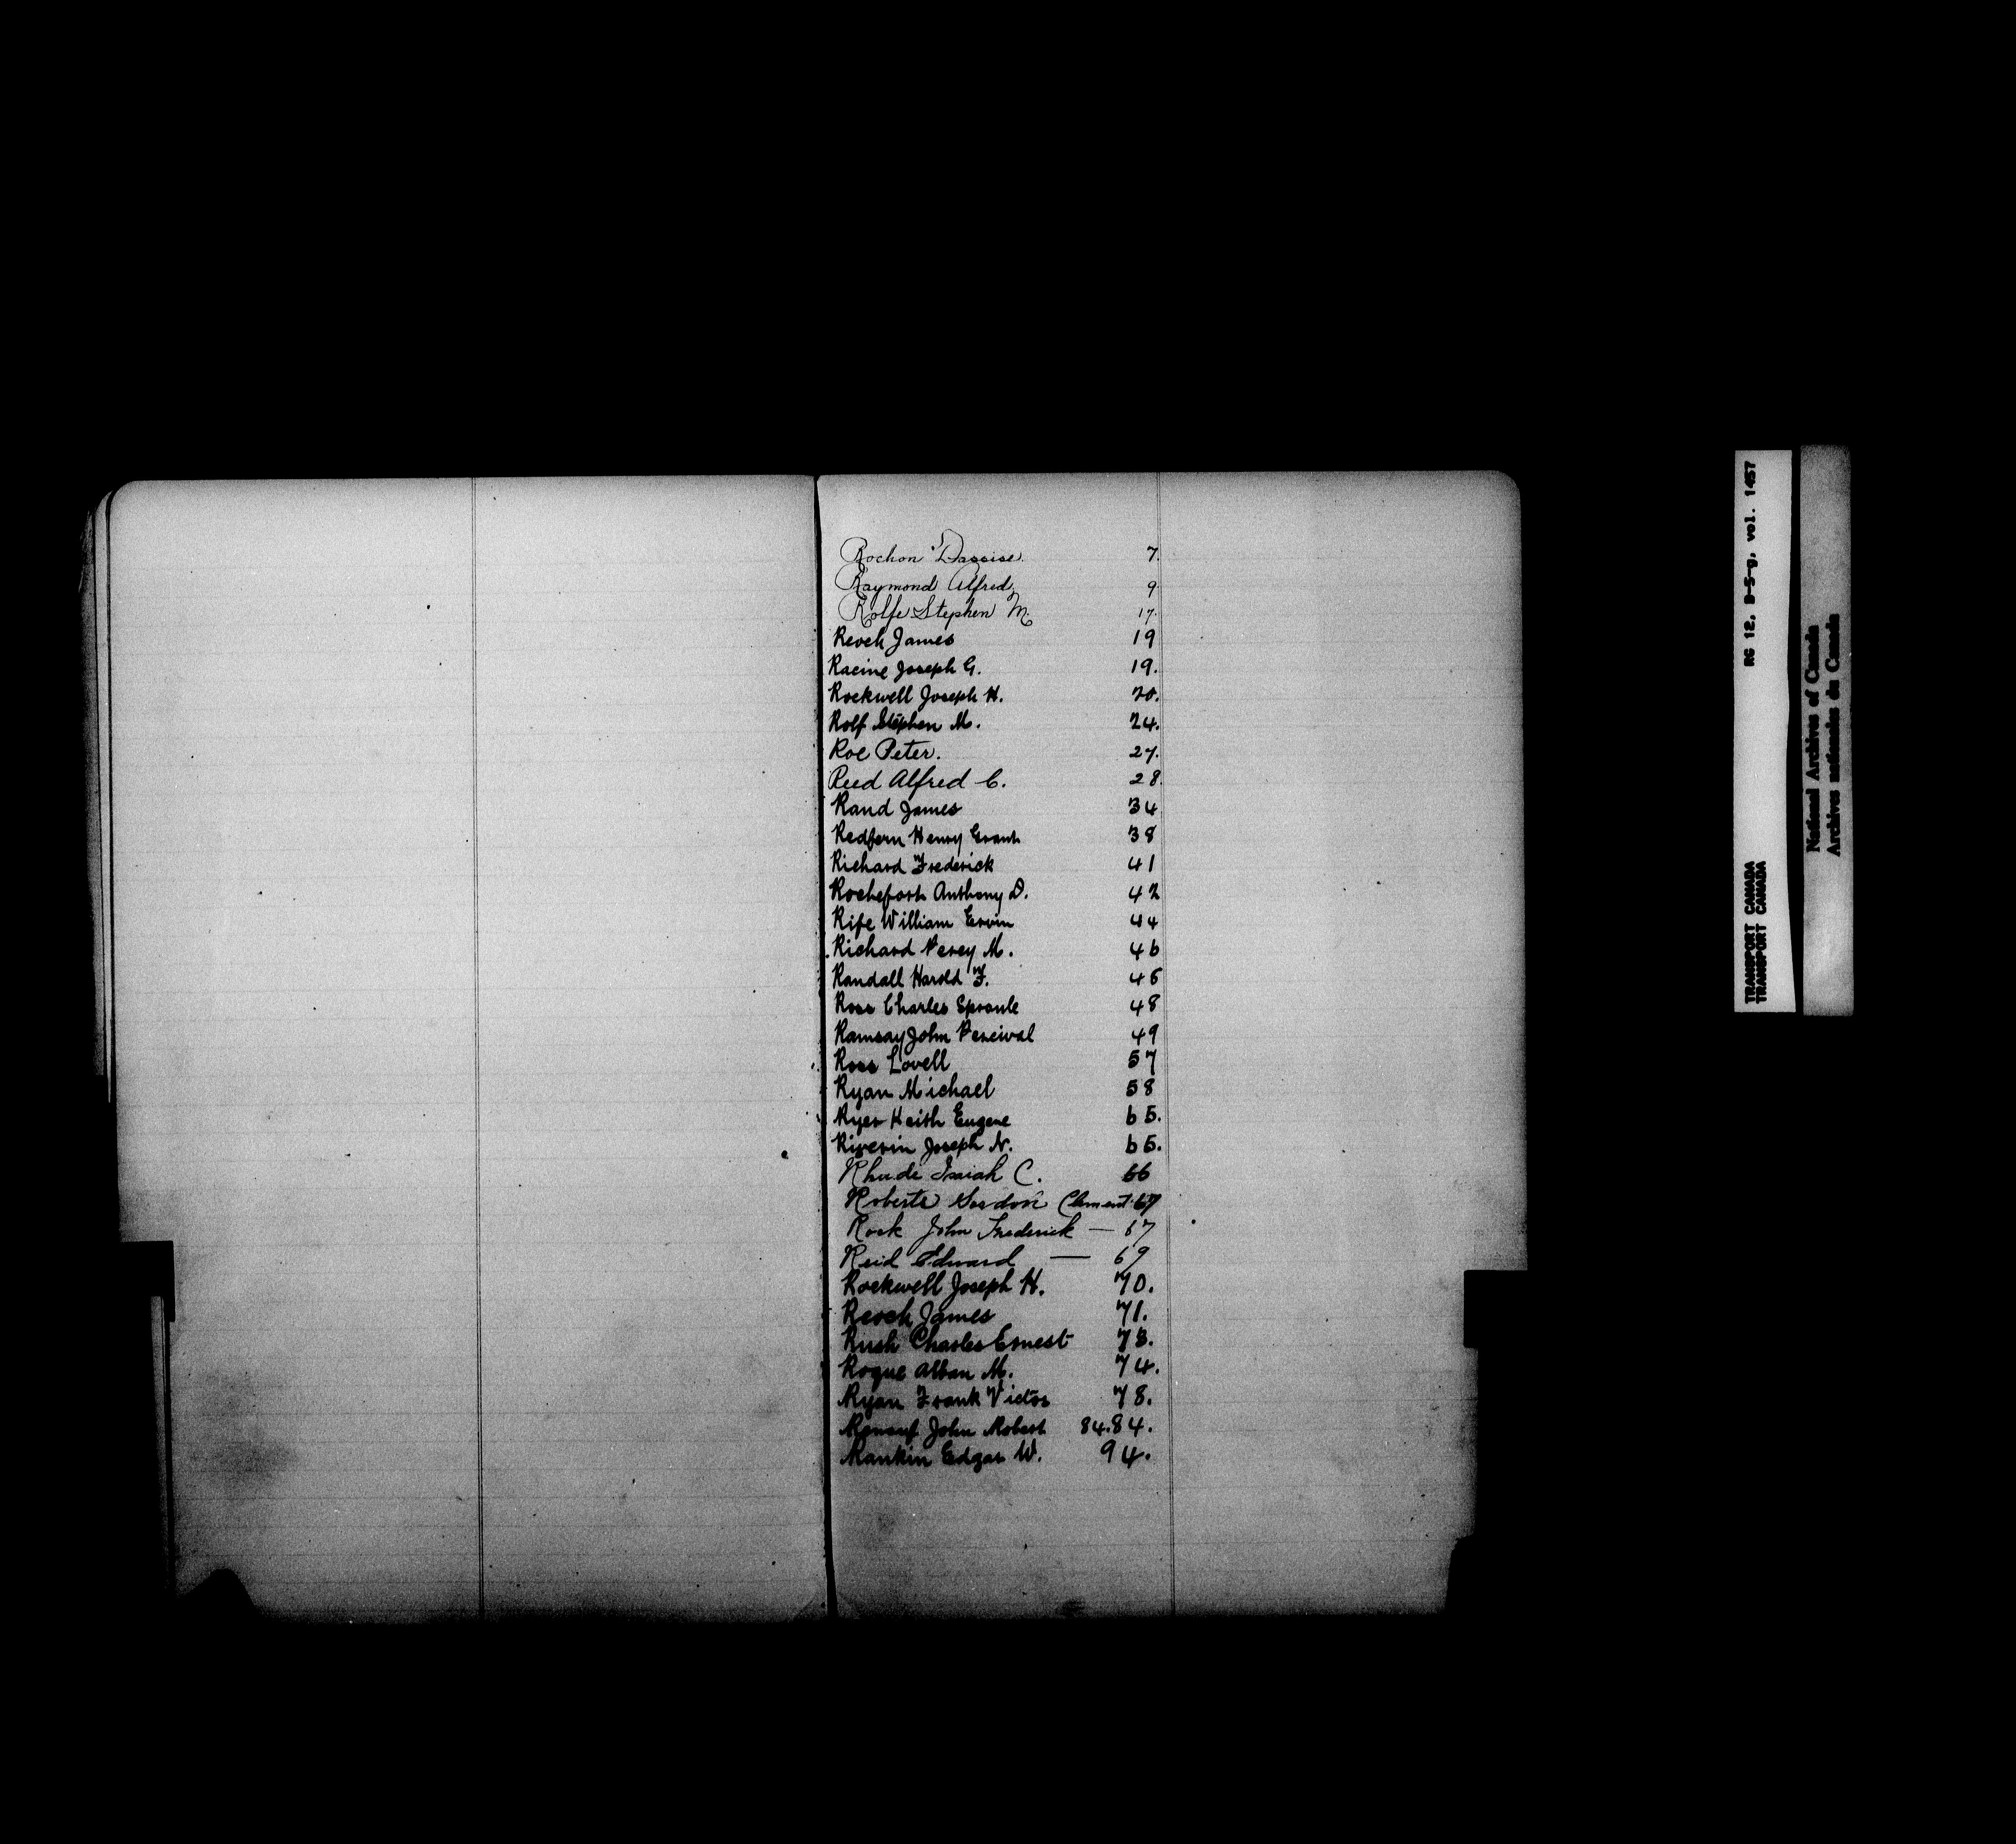 Rochon Dassise 7.
Raymond Alfred 9
Rolfe Stephen M. 17.
Revek James 19
Racine Joseph G. 19.
Rockwell Joseph H. 20.
Rolf Stephen M. 24.
Roe Peter. 27.
Reed Alfred C. 28.
Rand James 34
Redfern Henry Grant 38
Richard Frederick 41
Rochefort Anthony D. 42
Rife William Ervin 44
Richard Percy M. 46
Randall Harold F. 46
Ross Charles Sproule 48
Ramsay John Percival 49
Ross Lovell 57
Ryan Michael 58
Ryer Keith Eugene 65.
Riverin Joseph N. 65.
Rhude Isaiah C. 66
Roberts Gordon Clement 67
Rock John Frederick — 67
Reid Edward — 69
Rockwell Joseph H. 70.
Revek James 71.
Rush Charles Ernest 73.
Rogue Alban M. 74.
Ryan Frank Victor 78.
Renouf John Robert 84.84.
Rankin Edgar W. 94.
RG 12, B-5-g, vol. 1457
TRANSPORT CANADA
TRANSPORT CANADA
National Archives of Canada
Archives nationales du Canada